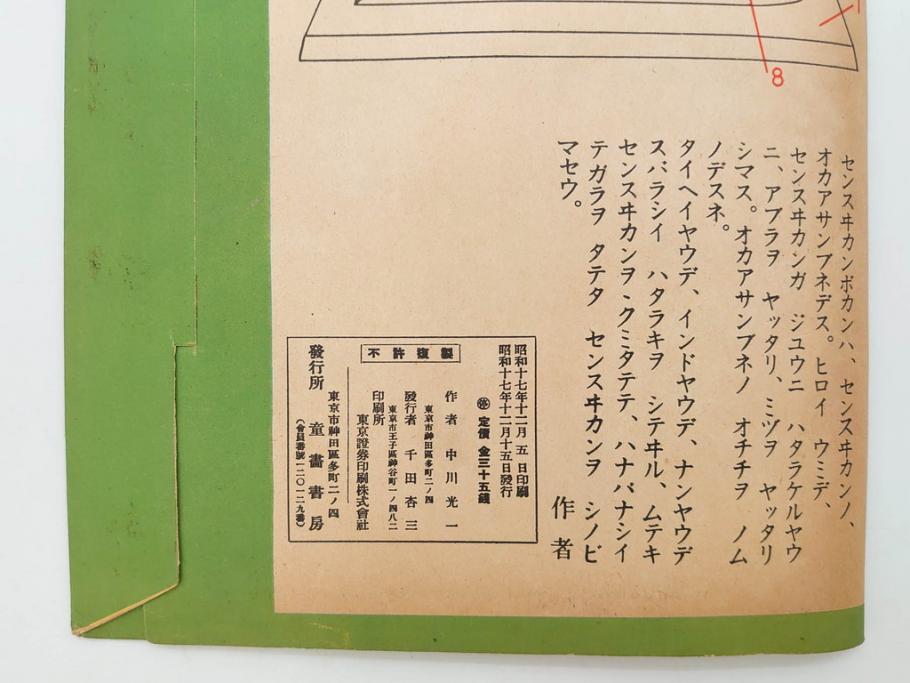 8
センスヰカンボカンハ、センスヰカンノ、
オカアサンブネデス。ヒロイ ウミデ、
センスヰカンガ ジユウニ ハタラケルヤウ
ニ、アブラヲ ヤッタリ、ミヅヲ ヤッタリ
シマス。オカアサンブネノ オチチヲ ノム
ノデスネ。
タイヘイヤウデ、インドヤウデ、ナンヤウデ
スバラシイ ハタラキヲ シテヰル、ムテキ
センスヰカンヲ、クミタテテ、ハナバナシイ
テガラヲ タテタ センスヰカンヲ シノビ
マセウ。
作者
昭和十七年十二月 五 日印刷
昭和十七年十二月十五日發行
定價 金三十五錢
不許複製
作者 中川光一
東京市神田區多町二ノ四
發行者 千田杏三
東京市王子區神谷町一ノ四八二
印刷所 東京證券印刷株式會社
東京市神田區多町二ノ四
發行所 童畫書房
(會員番號一二〇一二九番)